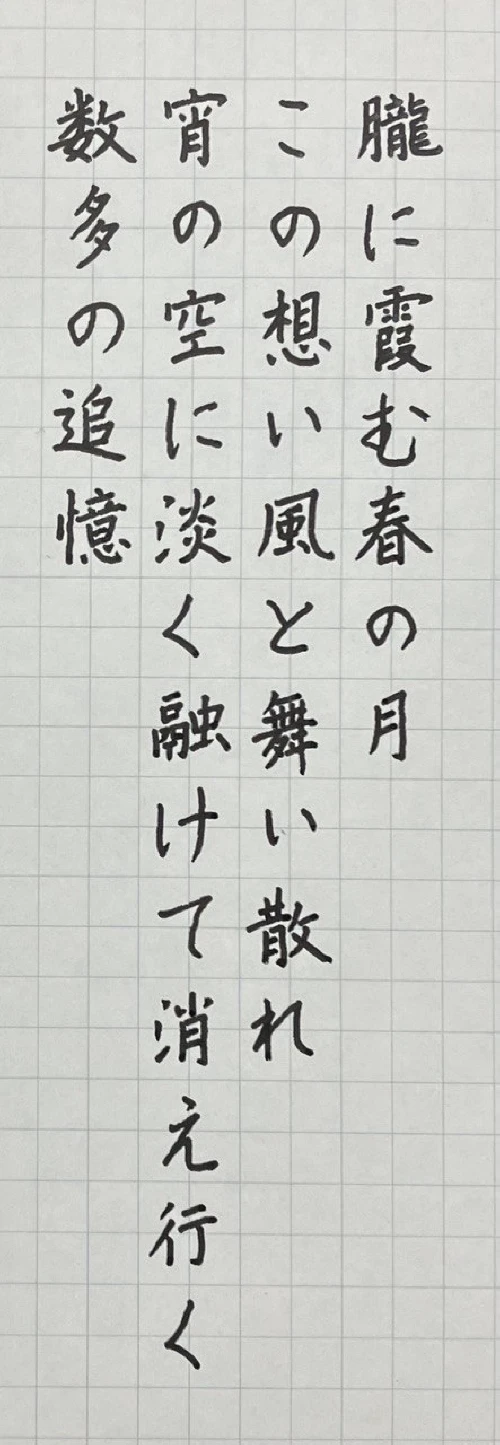 朧に霞む春の月
この想い風と舞い散れ
宵の空に淡く融けて消え行く
数多の追憶